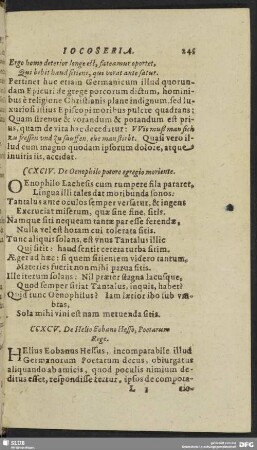 IOCOSERIA. 245
Ergo homo deterior longe est, fateamur oportet,
Qui bibit haud sitiens, qui vorat ante satur.
Pertinet huc etiam Germanicum illud quorun-
dam Epicuri de grege porcorum dictum, homini-
bus è religione Christianis plane indignum, sed lu-
xuriosi istius Episcopi moribus pulcre quadrans:
Quam strenue & vorandum & potandum est pri
us, quam de vita hac deceditur: VVie muß man sich
zu fressen vnd zu sauffen, ehe man stirbt. Quali vero il-
lud cum magno quodam ipsorum dolore, atque
inuitis iis, accidat.
CCXCIV. De Oenophilo potore egregio moriente.
OEnophilo Lachesis cum rumpere fila pararet,
Lingua illi tales dat moribunda sonos:
Tantalus ante oculos semper versatur, & ingens
Excruciat miserum, quæ sine fine, sitis.
Namque siti nequeam tantæ par esse ferendæ,
Nulla vel est hotam cui tolerata sitis.
Tunc aliquit solans, est vnus Tantalus illic
Qui sitit: haud sentit cetera turba sitim.
Æger ad hæc: si quem sitientem videro tantum,
Materies fuerit non mihi parua sitis.
Ille iterum solans: Nil præter stagna lacusque,
Quod semper sitiat Tantalus, inquit, habet?
Quid tunc Oenophilus? Iam lætior ibo sub vm-
bras,
Sola mihi vini est nam metuenda sitis.
CCXCV. De Helio Eobano Hesso, Poetarum
Rege.
HElius Eobanus Hessus, incomparabile illud
Germanorum Poetarum decus, obiurgatus
aliquando ab amicis, quod poculis nimium de
ditus esset, respondisse fertur, ipsos de compota-
L 3 tio-
SLUB